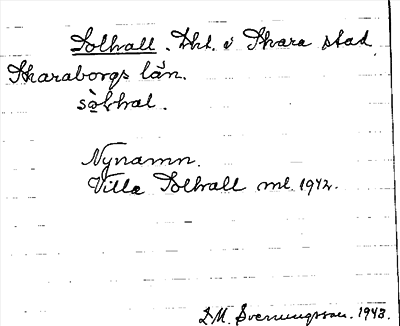 Solhall. Lht. i Skara stad
Skaraborgs län.
sòlhal.
Nynamn.
Villa Solhall ml. 1942.
I.M. Svenungsson. 1943.